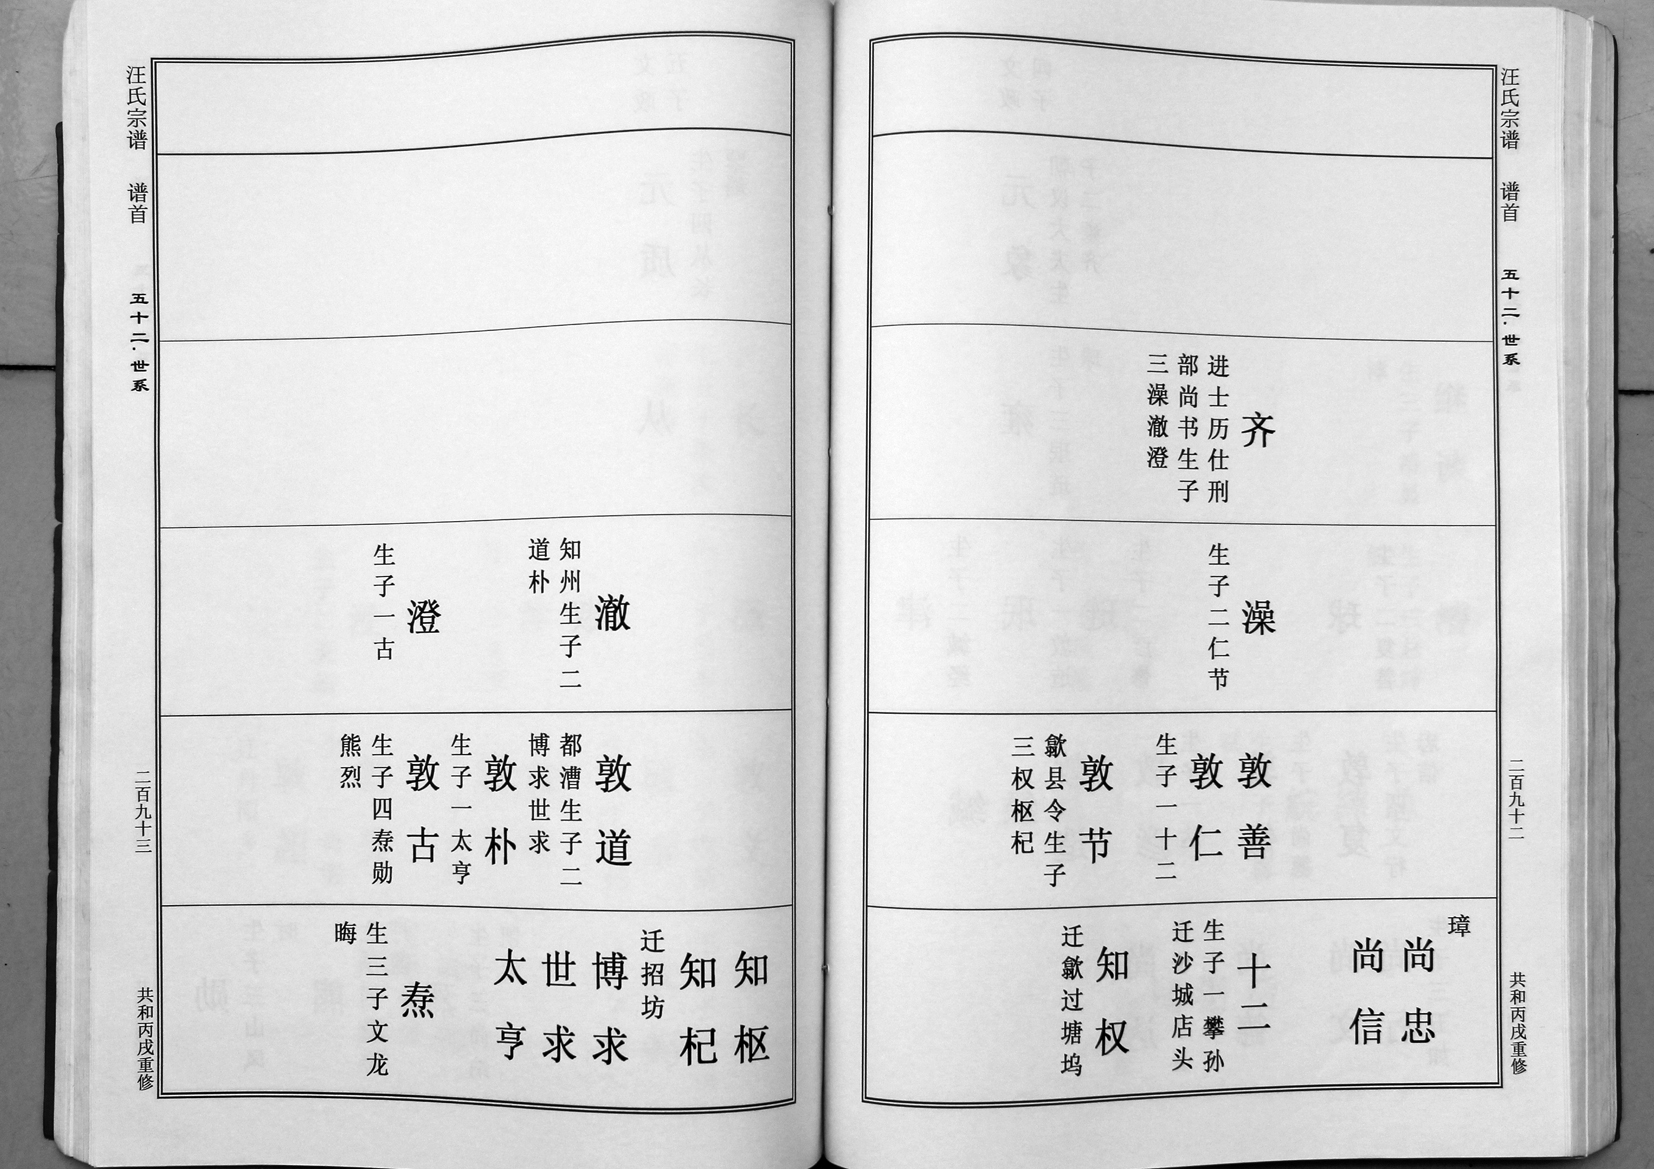 汪氏宗谱
谱首
五十二·世系
二百九十二
共和丙戌重修
齐
进士历仕刑
部尚书生子
三澡澈澄
澡
生子二仁节
敦善
敦仁
生子一十二
敦节
歙县令生子
三权枢杞
璋
尚忠
尚信
十二
生子一攀孙
迁沙城店头
知权
迁歙过塘坞
澈
知州生子二
道朴
澄
生子一古
敦道
都漕生子二
博求世求
敦朴
生子一太亨
敦古
生子四焘勋
熊烈
知枢
知杞
迁招坊
博求
世求
太亨
焘
生三子文龙
晦
汪氏宗谱
谱首
五十二·世系
二百九十三
共和丙戌重修